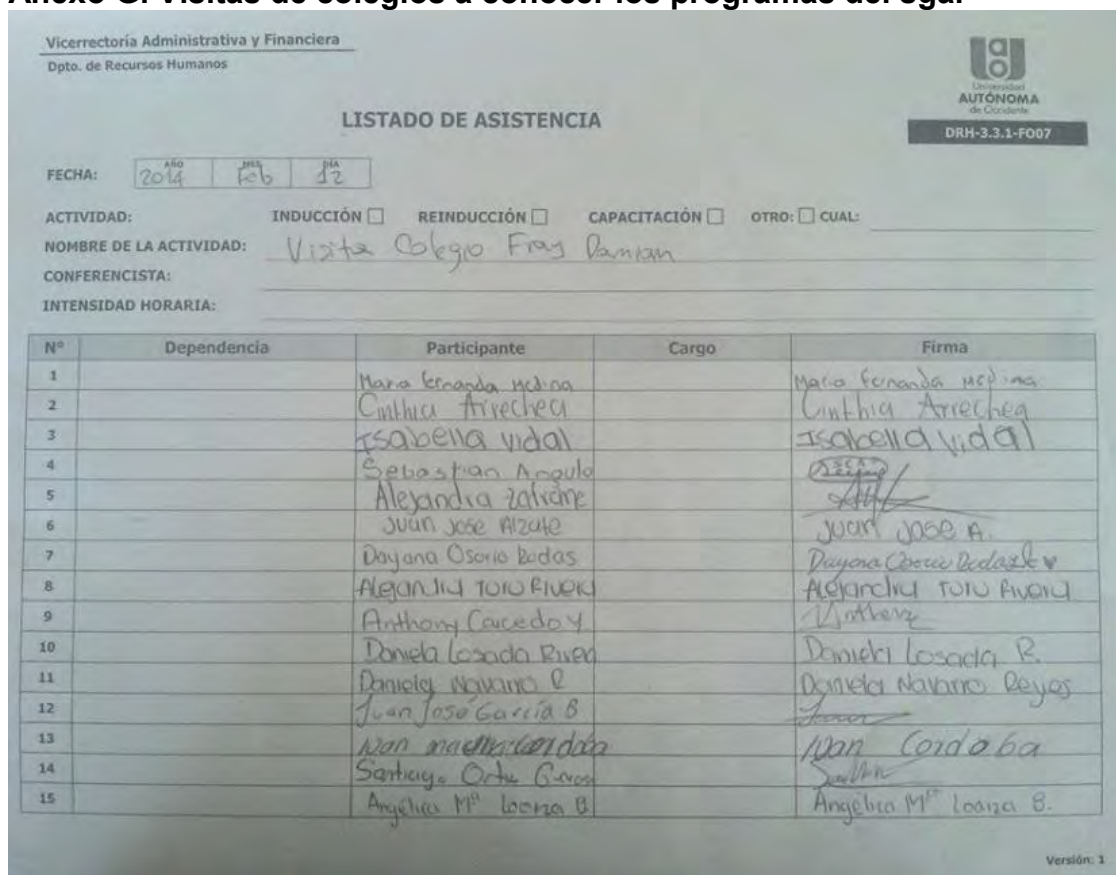 Anexo G. Visitas de colegios a conocer los programas del sga.
Vicerrectoría Administrativa y Financiera
Dpto. de Recursos Humanos
Universidad
AUTÓNOMA
de Occidente
LISTADO DE ASISTENCIA
DRH-3.3.1-FO07
FECHA: AÑO 2014 MES Feb DÍA 12
ACTIVIDAD: INDUCCIÓN REINDUCCIÓN CAPACITACIÓN OTRO: CUAL:
NOMBRE DE LA ACTIVIDAD: Visita Colegio Fray Damian
CONFERENCISTA:
INTENSIDAD HORARIA:
Nº Dependencia Participante Cargo Firma
1 Maria fernanda Medina Maria fernanda Medina
2 Cinthia Arrechea Cinthia Arrechea
3 Isabella vidal Isabella vidal
4 Sebastian Angulo
5 Alejandra
6 Juan Jose Alzate Juan Jose A.
7 Dayana Osorio Rodas Dayana Osorio
8 Alejandra Toro Rivera Alejandra Toro Rivera
9 Anthony Caicedo Y Anthony
10 Daniela Losada Rivera Daniela Losada R.
11 Daniela Navarro R Daniela Navarro Reyes
12 Juan José García B
13 Ivan Cordoba Ivan Cordoba
14 Santiago
15 Angélica Mª Loaiza B Angélica Mª Loaiza B.
Versión: 1